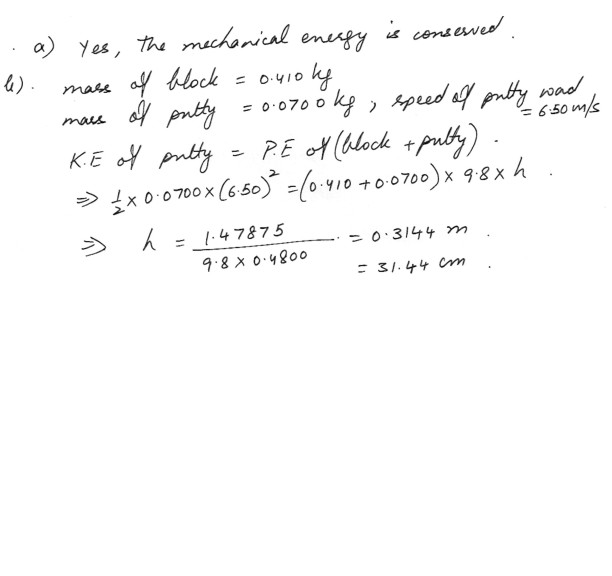 . a) Yes, The mechanical energy is conserved.
b). mass of block = 0.410 kg
mass of putty = 0.0700 kg, speed of putty wad = 6.50 m/s
K.E of putty = P.E of (block + putty).
⇒ 1/2 × 0.0700 × (6.50)² = (0.410 + 0.0700) × 9.8 × h.
⇒ h = 1.47875 / 9.8 × 0.4800 = 0.3144 m.
= 31.44 cm.